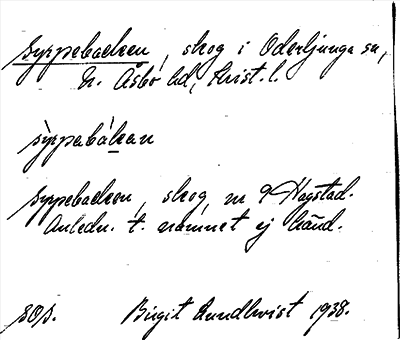 Syppebacken, skog i Oderljunga sn,
N. Åsbo hd, Krist. l.
sỳppabákan
Syppebacken, skog, nr 9 Hagstad.
Anledn. t. namnet ej känd.
Birgit Lundkvist 1938.